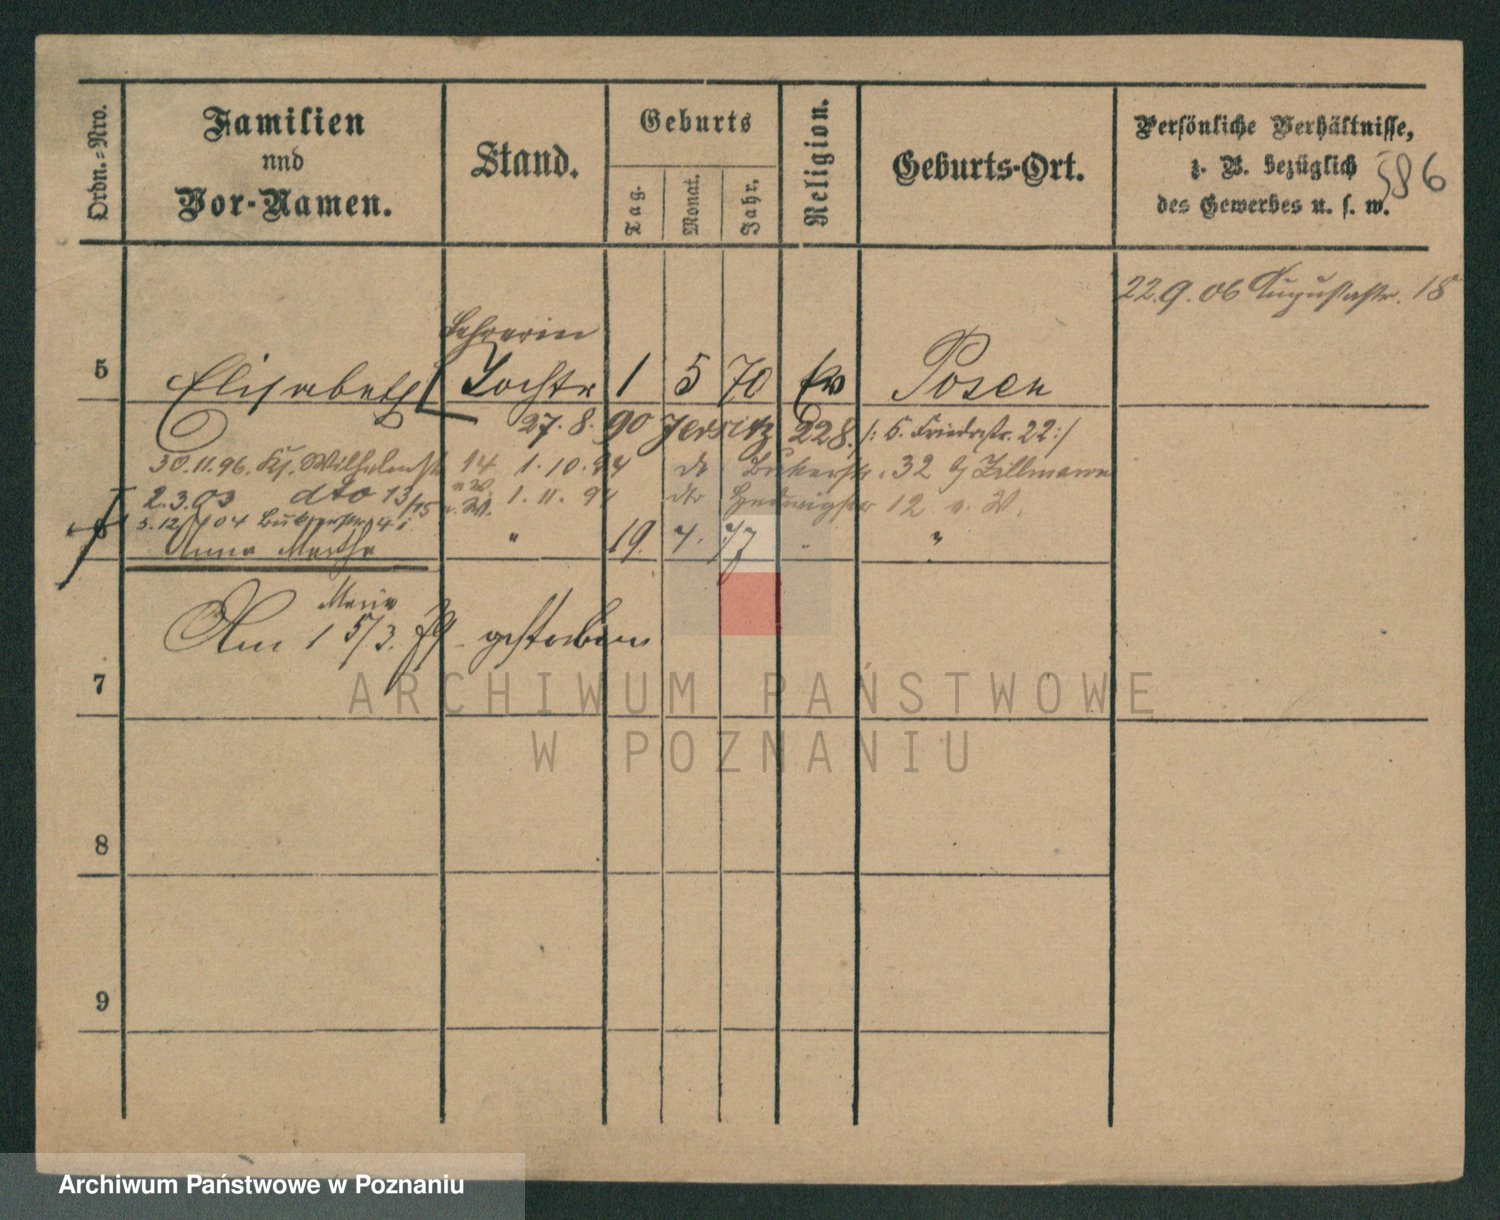 Ordn.=Nro.
Familien
nnd
Vor-Namen.
Stand.
Geburts
Tag.
Monat.
Jahr.
Religion.
Geburts-Ort.
Persönliche Verhältnisse,
z. B. bezüglich
des Gewerbes u. s. w.
586
22.9.06 Augustastr. 18
Lehrerin
5 Elisabeth Tochtr 1 5 70 Ev Posen
27.8.90 Jersitz 228. /: 5. Friedrstr. 22:/
30.11.96. Kl. Wilhelmstr 14 1.10.94 do Bukerstr. 32 b/ Zillmann
2.3.03 dto 13/15 1.11.94 dto Hedwigstr 12 v. W.
v. W.
5.12.04 Bukerstr. 4
6 Anna Martha " 19. 7. 77 "
Maria
Am 15/3. 79. gestorben
7
8
9
ARCHIWUM PAŃSTWOWE
W POZNANIU
Archiwum Państwowe w Poznaniu